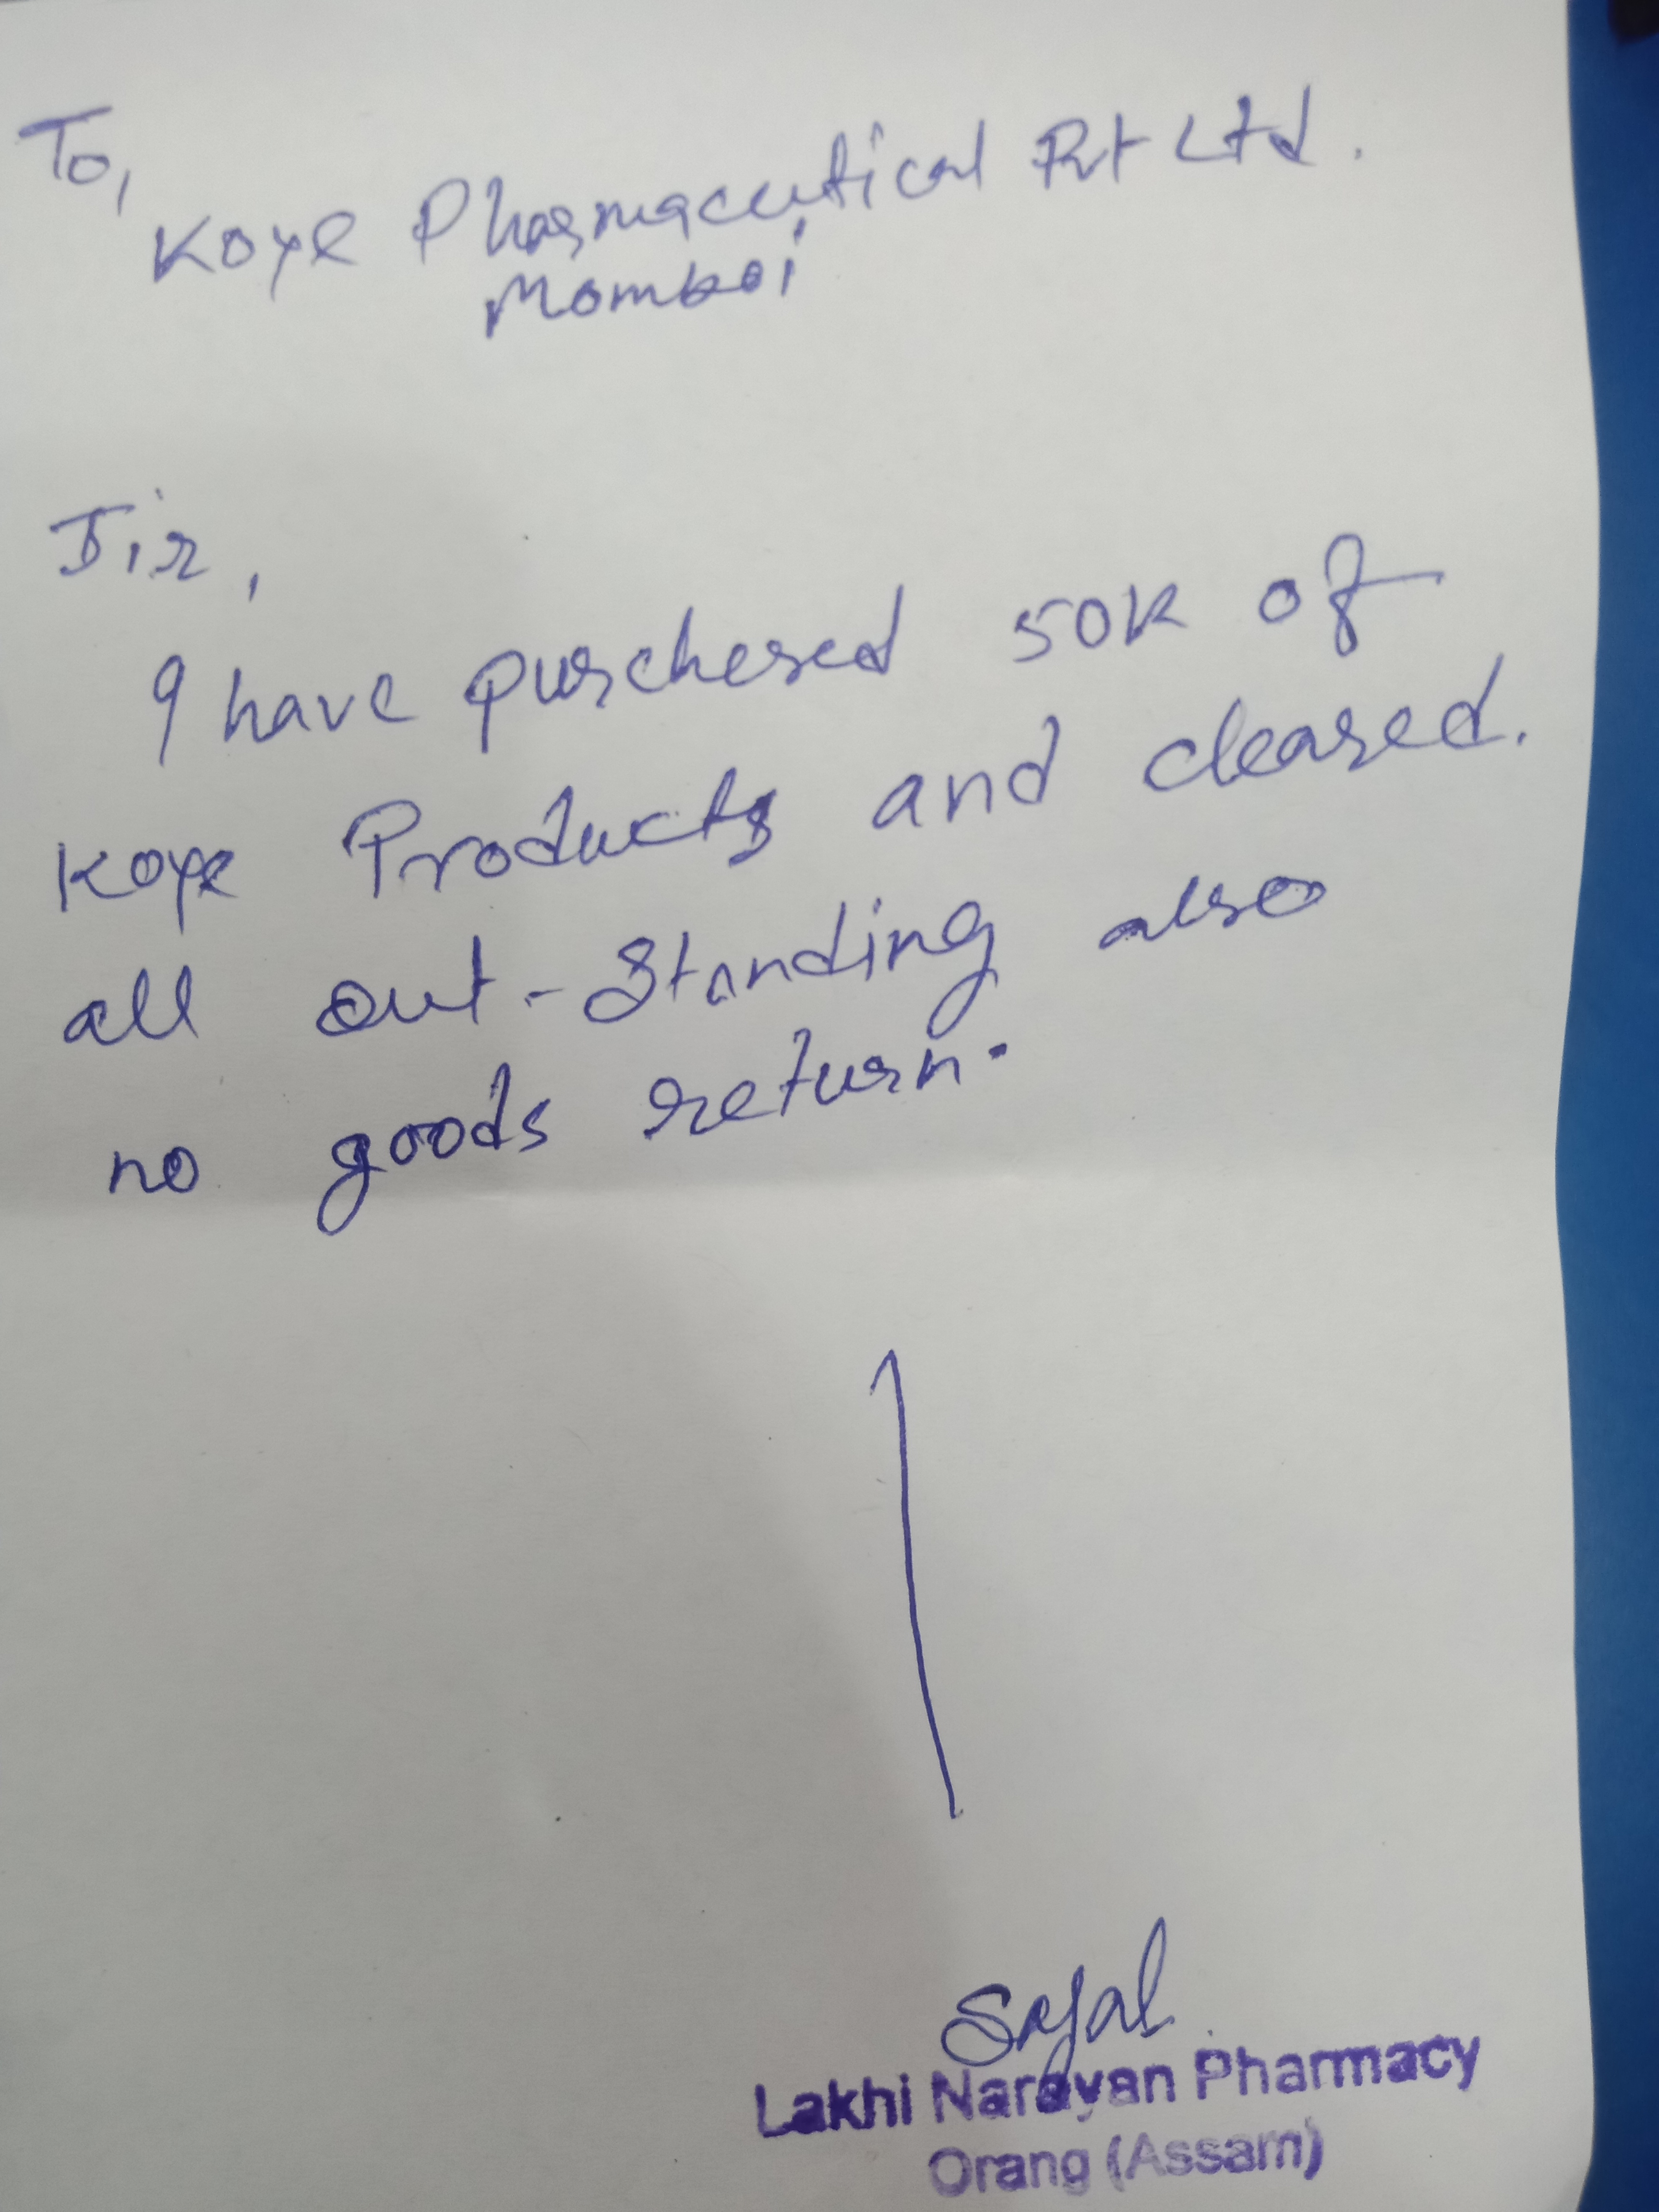 To,
Koye Pharmaceutical Pvt Ltd.
Mombai
Sir,
I have purchesed 50K of
Koye Products and cleared.
all out-standing also
no goods return.
Sajal
Lakhi Narayan Pharmacy
Orang (Assam)